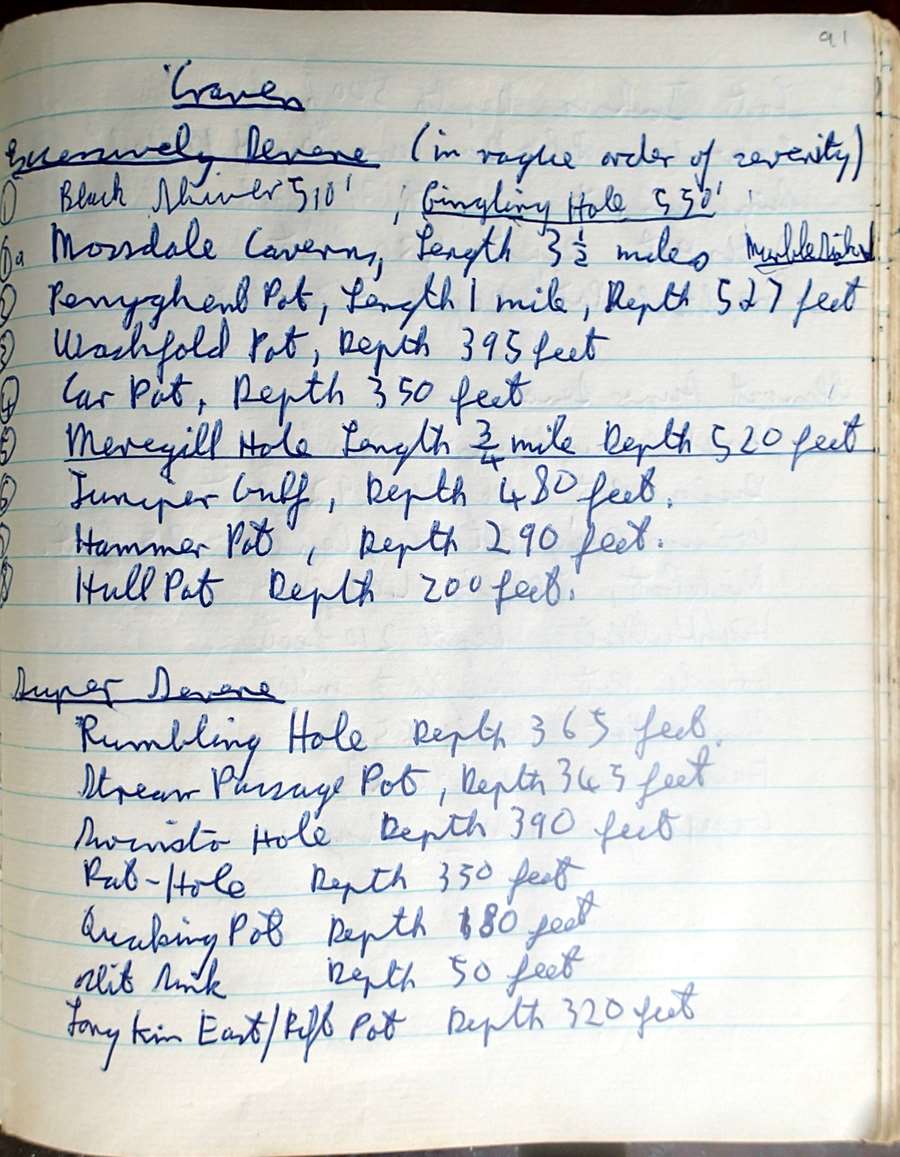 91
Craven
Excessively Severe (in vague order of severity)
① Black Shiver 510' ; Gingling Hole 550'
①a Mossdale Caverns, Length 3½ miles Marble Sink
② Penyghent Pot, Length 1 mile, Depth 527 feet
③ Washfold Pot, Depth 395 feet
④ Car Pot, Depth 350 feet
⑤ Meregill Hole Length ¾ mile Depth 520 feet
⑥ Juniper Gulf, Depth 480 feet.
⑦ Hammer Pot, Depth 290 feet.
⑧ Hull Pot Depth 200 feet.
Super Severe
Rumbling Hole Depth 365 feet.
Stream Passage Pot, Depth 345 feet
Swinsto Hole Depth 390 feet
Rat-Hole Depth 350 feet
Quaking Pot Depth 180 feet
Slit Sink Depth 50 feet
Long Kin East/Rift Pot Depth 320 feet